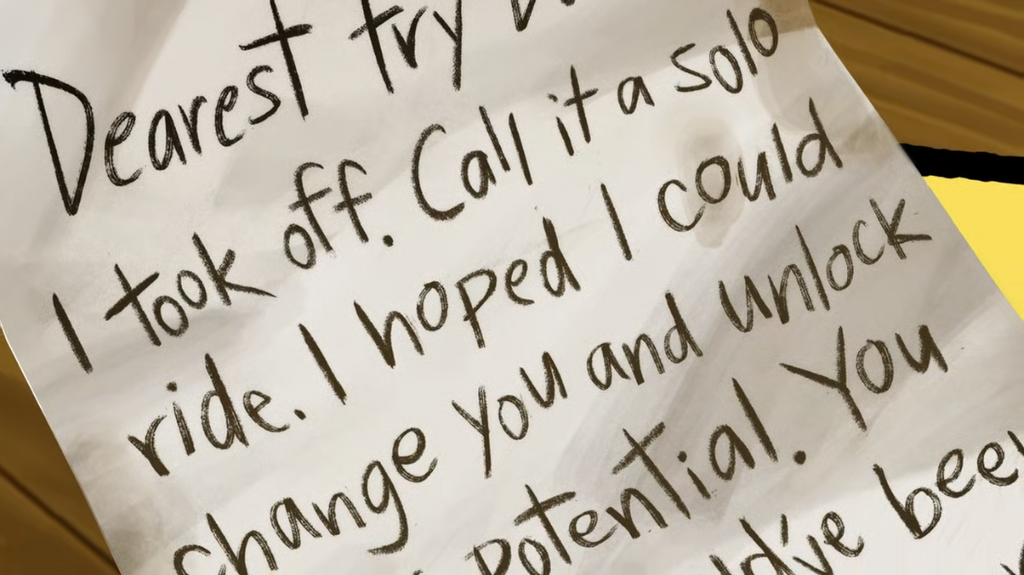 Dearest try
I took off. Call it a solo
ride. I hoped I could
change you and unlock
potential. You
been